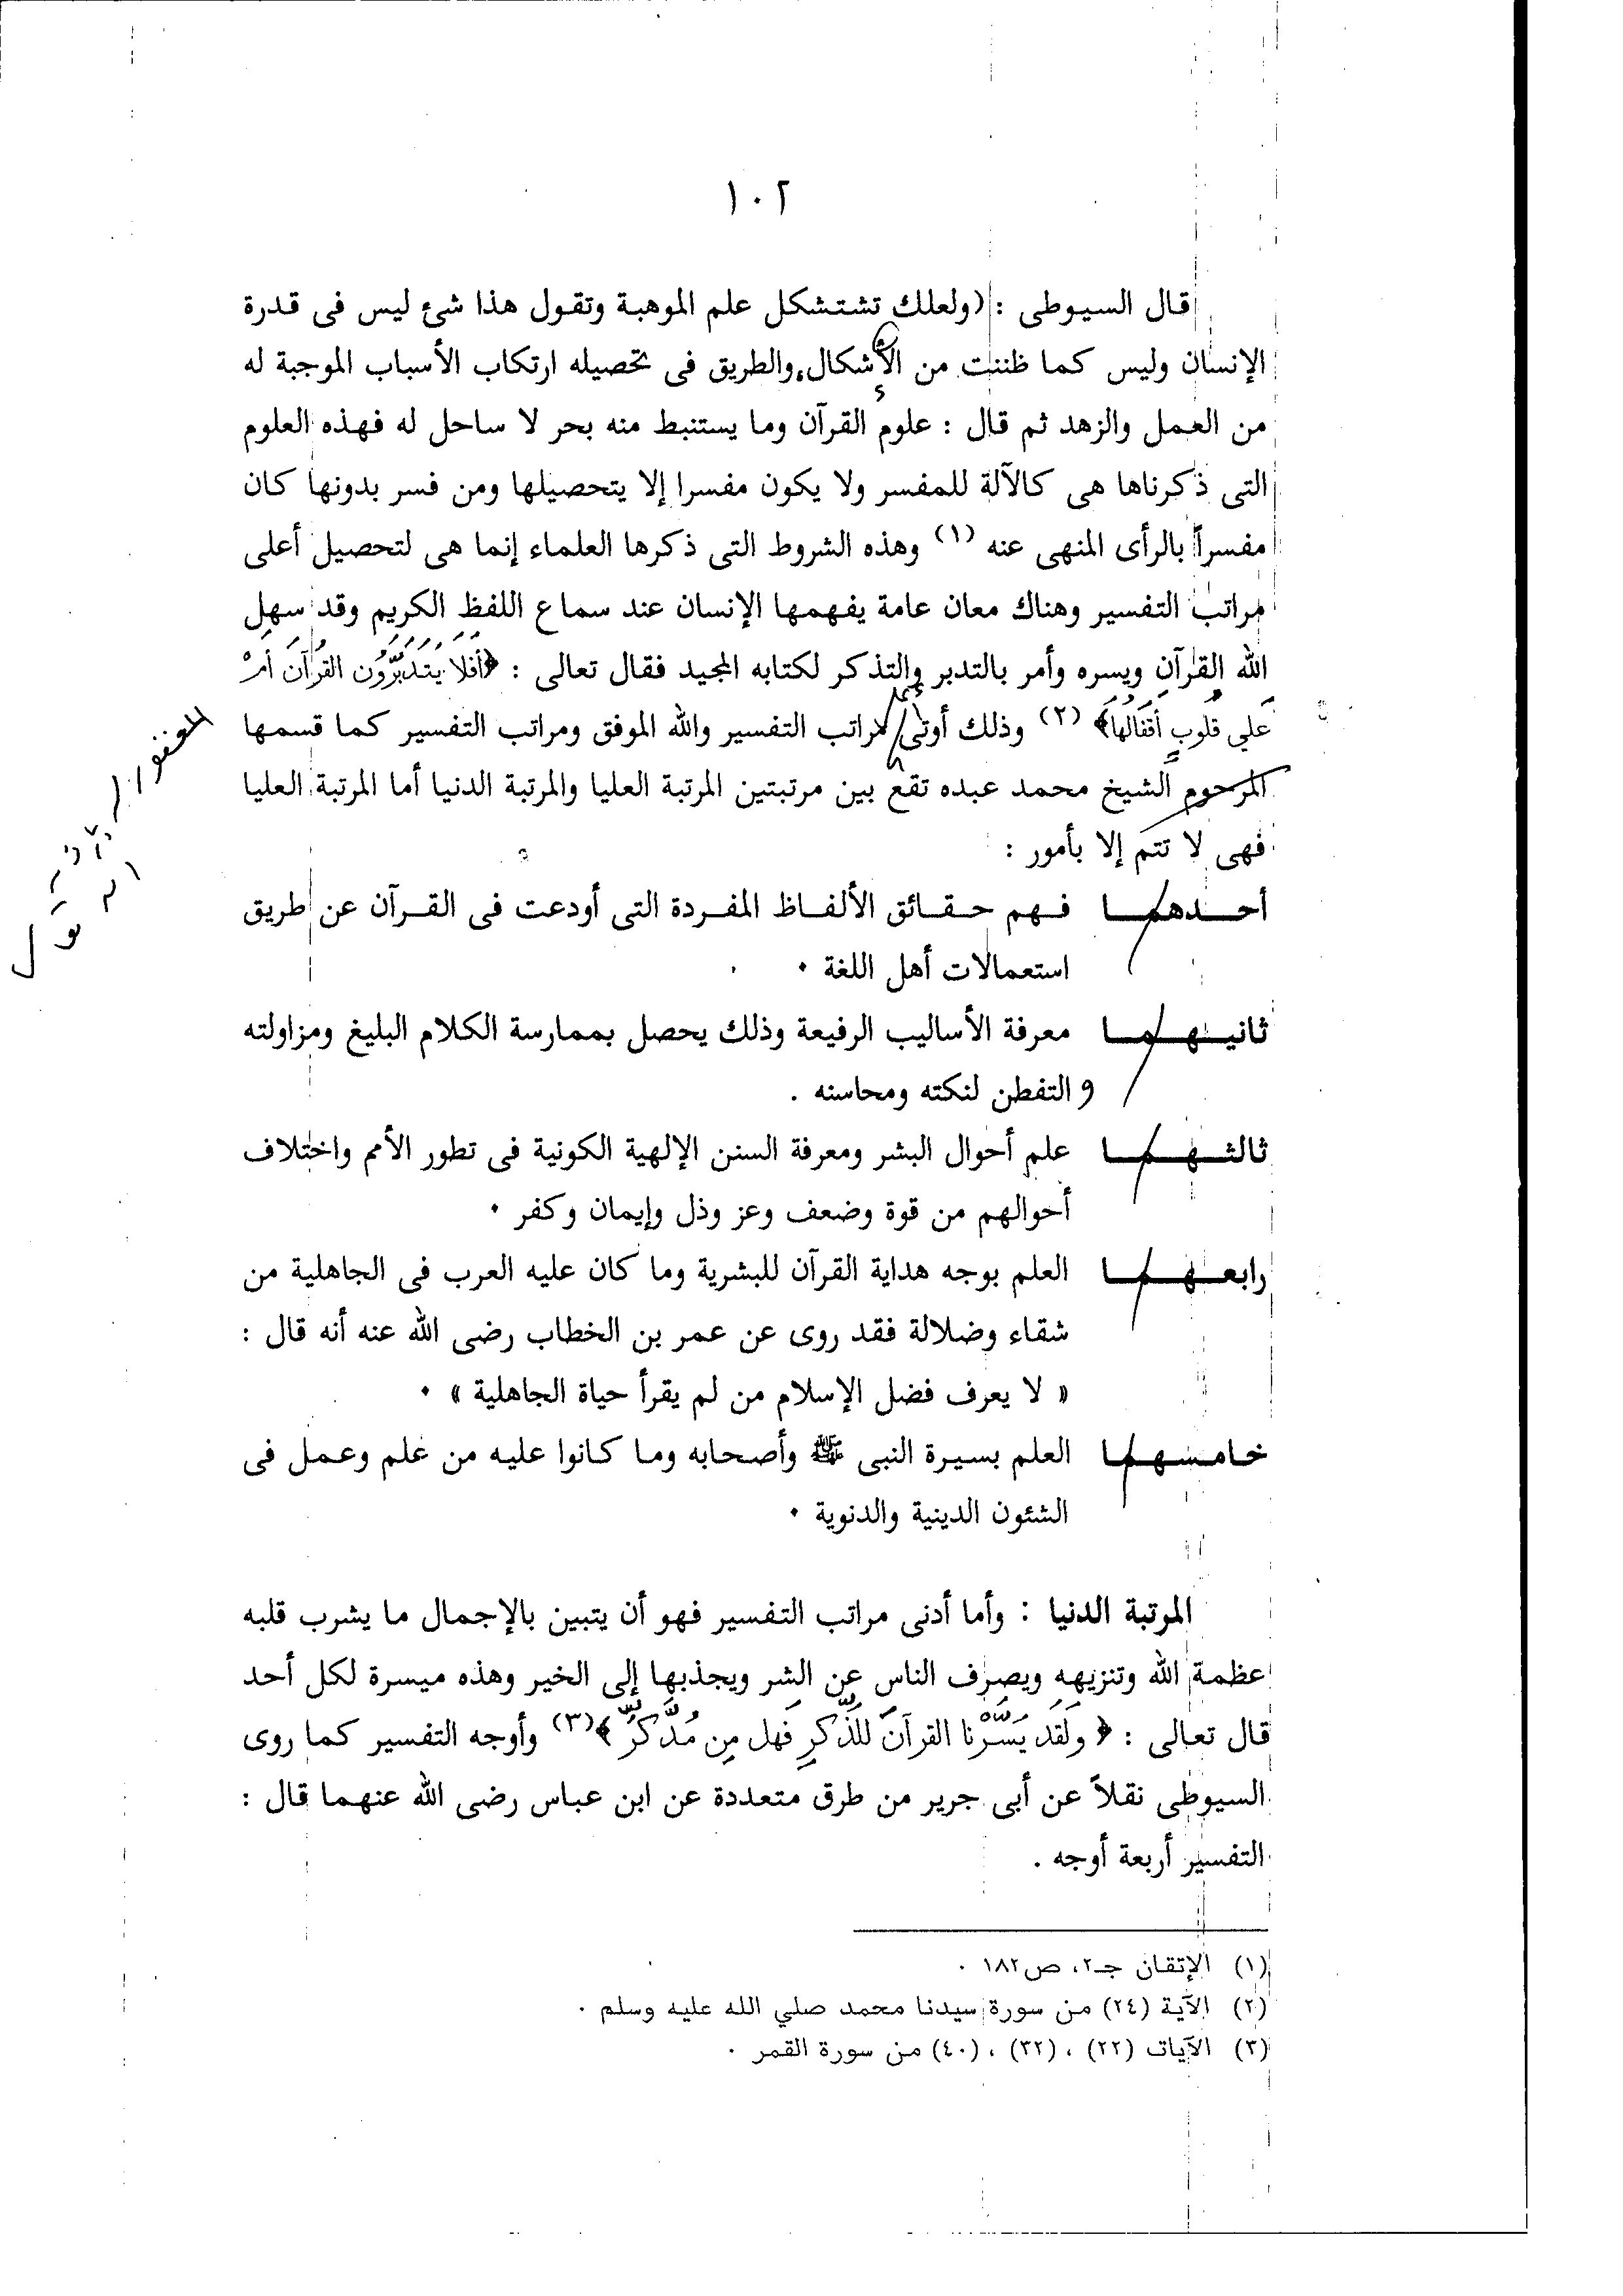 ١٠٢
قال السيوطى : (ولعلك تشتشكل علم الموهبة وتقول هذا شئ ليس فى قدرة
الإنسان وليس كما ظننت من الأشكال والطريق فى تحصيله ارتكاب الأسباب الموجبة له
من العمل والزهد ثم قال : علوم القرآن وما يستنبط منه بحر لا ساحل له فهذه العلوم
التى ذكرناها هى كالآلة للمفسر ولا يكون مفسرا إلا يتحصيلها ومن فسر بدونها كان
مفسراً بالرأى المنهى عنه (١) وهذه الشروط التى ذكرها العلماء إنما هى لتحصيل أعلى
مراتب التفسير وهناك معان عامة يفهمها الإنسان عند سماع اللفظ الكريم وقد سهل
الله القرآن ويسره وأمر بالتدبر والتذكر لكتابه المجيد فقال تعالى : ﴿أَفَلَا يَتَدَبَّرُون القُرْآنَ أَمْ
عَلي قُلوبٍ أَقفَالُها﴾ (٢) وذلك أوتى مراتب التفسير والله الموفق ومراتب التفسير كما قسمها
المرحوم الشيخ محمد عبده تقع بين مرتبتين المرتبة العليا والمرتبة الدنيا أما المرتبة العليا
فهى لا تتم إلا بأمور :
أحدهما فهم حقائق الألفاظ المفردة التى أودعت فى القرآن عن طريق
استعمالات أهل اللغة .
ثانيهما معرفة الأساليب الرفيعة وذلك يحصل بممارسة الكلام البليغ ومزاولته
و التفطن لنكته ومحاسنه .
ثالثهما علم أحوال البشر ومعرفة السنن الإلهية الكونية فى تطور الأمم واختلاف
أحوالهم من قوة وضعف وعز وذل وإيمان وكفر .
رابعهما العلم بوجه هداية القرآن للبشرية وما كان عليه العرب فى الجاهلية من
شقاء وضلالة فقد روى عن عمر بن الخطاب رضى الله عنه أنه قال :
« لا يعرف فضل الإسلام من لم يقرأ حياة الجاهلية » .
خامسهما العلم بسيرة النبى ﷺ وأصحابه وما كانوا عليه من علم وعمل فى
الشئون الدينية والدنوية .
المرتبة الدنيا : وأما أدنى مراتب التفسير فهو أن يتبين بالإجمال ما يشرب قلبه
عظمة الله وتنزيهه ويصرف الناس عن الشر ويجذبها إلى الخير وهذه ميسرة لكل أحد
قال تعالى : ﴿ ولَقَد يَسَّرْنا القرآنَ للذِّكرِ فَهل مِن مُدَّكرٍّ ﴾(٣) وأوجه التفسير كما روى
السيوطى نقلاً عن أبى جرير من طرق متعددة عن ابن عباس رضى الله عنهما قال :
التفسير أربعة أوجه .
(١) الإتقان جـ٢، ص١٨٢ .
(٢) الآية (٢٤) من سورة سيدنا محمد صلي الله عليه وسلم .
(٣) الآيات (٢٢) ، (٣٢) ، (٤٠) من سورة القمر .